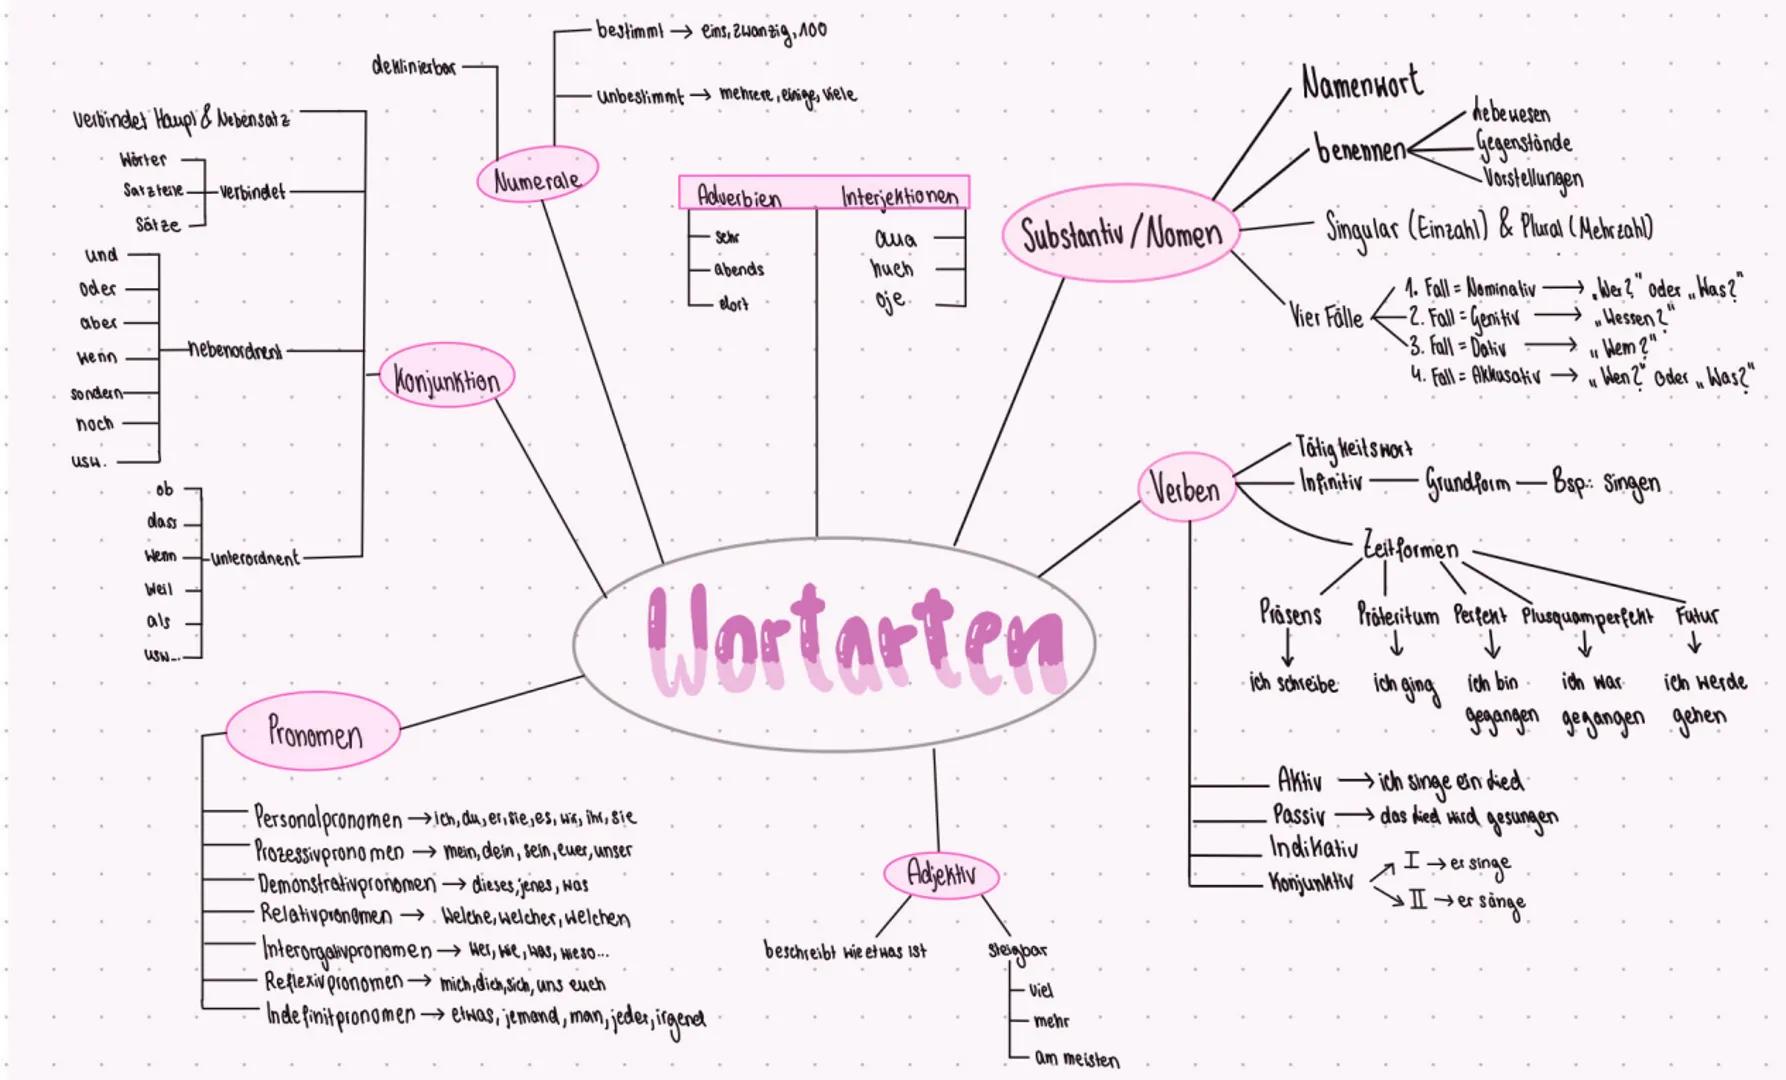 Wortarten
Numerale
deklinierbar
bestimmt → eins, zwanzig, 100
unbestimmt → mehrere, einige, viele
Konjunktion
verbindet Haupt & Nebensatz
Wörter
Satzteile
Sätze
verbindet
und
oder
aber
wenn
sondern
noch
usw.
nebenordnent
ob
dass
wenn
weil
als
usw...
unterordnent
Adverbien
sehr
abends
dort
Interjektionen
aua
huch
oje
Substantiv/Nomen
Namenwort
benennen
Lebewesen
Gegenstände
Vorstellungen
Singular (Einzahl) & Plural (Mehrzahl)
Vier Fälle
1. Fall = Nominativ → „Wer?" oder „Was?"
2. Fall = Genitiv → „Wessen?"
3. Fall = Dativ → „Wem?"
4. Fall = Akkusativ → „Wen?" oder „Was?"
Verben
Tätigkeitswort
Infinitiv — Grundform — Bsp.: singen
Zeitformen
Präsens Präteritum Perfekt Plusquamperfekt Futur
ich schreibe ich ging ich bin ich war ich werde
gegangen gegangen gehen
Aktiv → ich singe ein Lied
Passiv → das Lied wird gesungen
Indikativ
Konjunktiv
I → er singe
II → er sänge
Pronomen
Personalpronomen → ich, du, er, sie, es, wir, ihr, sie
Prozessivpronomen → mein, dein, sein, euer, unser
Demonstrativpronomen → dieses, jenes, was
Relativpronomen → welche, welcher, welchen
Interorgativpronomen → wer, wie, was, wieso...
Reflexivpronomen → mich, dich, sich, uns euch
Indefinitpronomen → etwas, jemand, man, jeder, irgend
Adjektiv
beschreibt wie etwas ist
steigbar
viel
mehr
am meisten